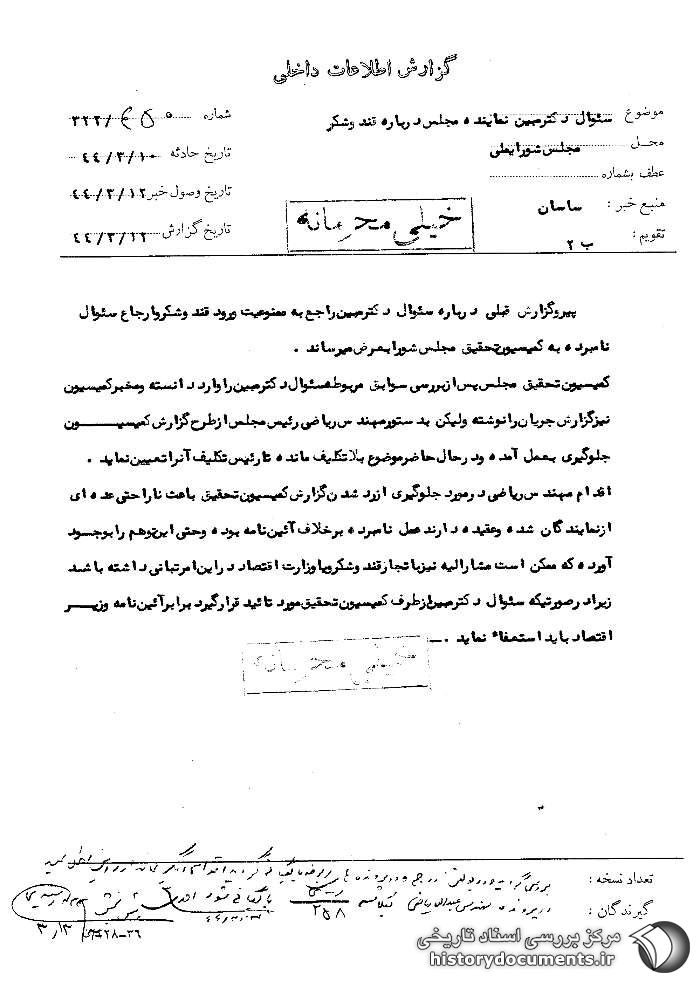 گزارش اطلاعات داخلی
موضوع سئوال دکترمبین نماینده مجلس درباره قند وشکر
محل مجلس شورایملی
عطف بشماره
منبع خبر : ساسان
تقویم : ب ۲
شماره ۳۲۲/
تاریخ حادثه ۴۴/۳/۱۰
تاریخ وصول خبر ۴۴/۳/۱۲
تاریخ گزارش ۴۴/۳/۱۲
خیلی محرمانه
پیروگزارش قبلی درباره سئوال دکترمبین راجع به ممنوعیت ورود قند وشکروارجاع سئوال
نامبرده به کمیسیون تحقیق مجلس شورا بعرض میرساند .
کمیسیون تحقیق مجلس پس ازبررسی سوابق مربوطه سئوال دکترمبین را وارد دانسته ومخبرکمیسیون
نیزگزارش جریان را نوشته ولیکن بدستورمهندس ریاضی رئیس مجلس ازطرح گزارش کمیسیون
جلوگیری بعمل آمده ودرحال حاضرموضوع بلاتکلیف مانده تارئیس تکلیف آنرا تعیین نماید .
اقدام مهندس ریاضی درمورد جلوگیری ازرد شدن گزارش کمیسیون تحقیق باعث ناراحتی عده ای
ازنمایندگان شده وعقیده دارند عمل نامبرده برخلاف آئین نامه بوده وحتی این توهم را بوجود
آورده که ممکن است مشارالیه نیزبا تجارقند وشکرویا وزارت اقتصاد دراین امرتبانی داشته باشد
زیرا درصورتیکه سئوال دکترمبین ازطرف کمیسیون تحقیق مورد تائید قرارگیرد برابرآئین نامه وزیر
اقتصاد باید استعفاء نماید .
خیلی محرمانه
تعداد نسخه :
گیرندگان :
در پرونده مهندس عبداله ریاضی
۲۵۸
۳/۱۳
مرکز بررسی اسناد تاریخی
historydocuments.ir